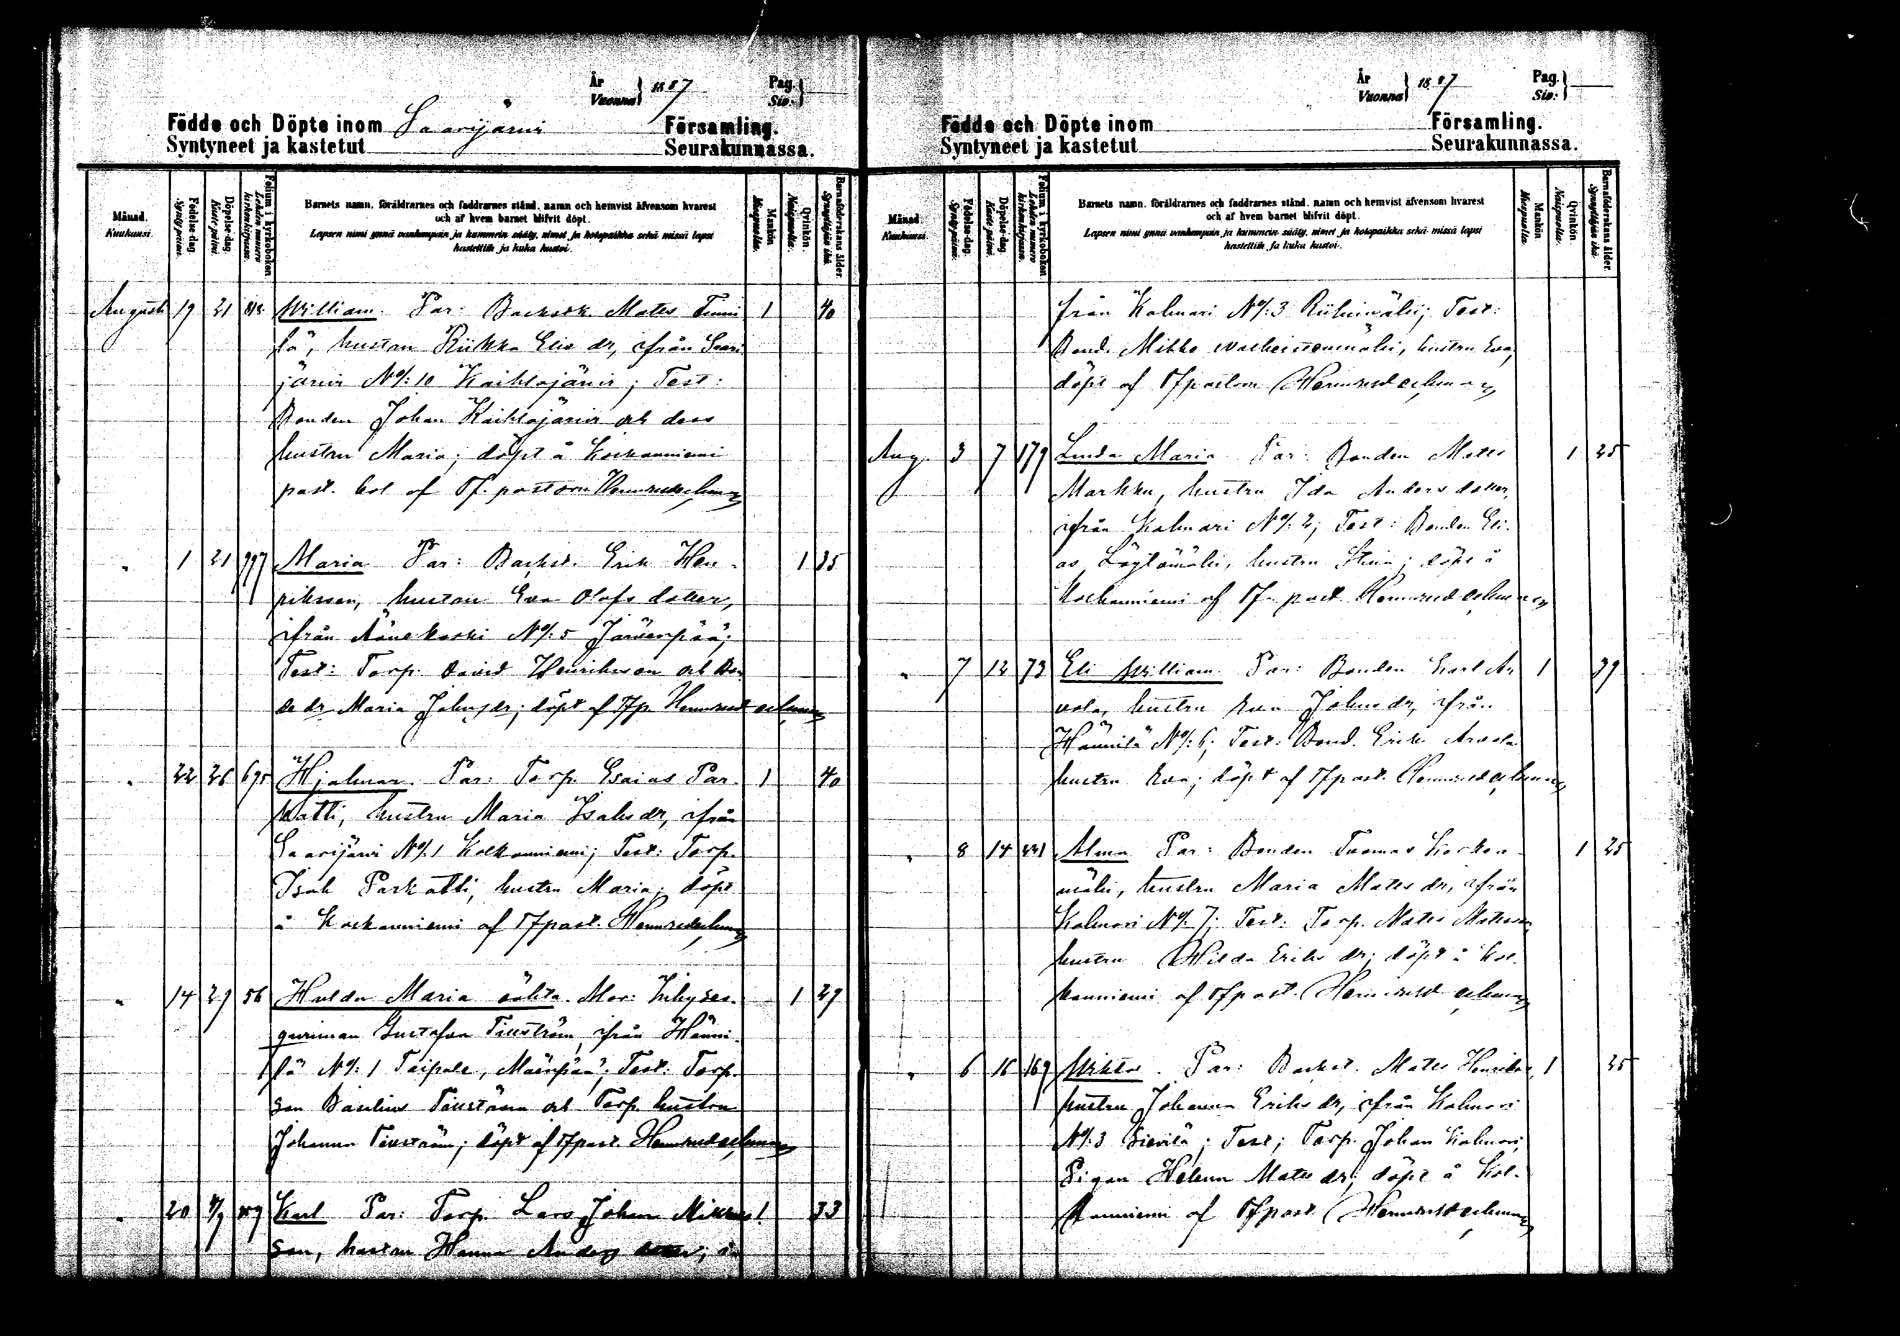 År
Vuonna } 1887
Pag.
Siv. }
Födde och Döpte inom Saarijärvi Församling.
Syntyneet ja kastetut Seurakunnassa.
Månad. Kuukausi.
Födelse-dag. Syntymäpäivä.
Döpelse-dag. Kaste päivä.
Folium i kyrkoboken. Lehden numero kirkonkirjassa.
Barnets namn, föräldrarnes och faddrarnes stånd, namn och hemvist äfvensom hvarest
och af hvem barnet blifvit döpt.
Lapsen nimi ynnä vanhempain ja kummein sääty, nimet ja kotopaikka sekä missä lapsi
kastettiin ja kuka kastoi.
Mankön. Miespuolia.
Qvinkön. Naispuolia.
Barnföderskans ålder. Synnyttäjän ikä.
Augusti 19 21 William. Par: Backstk. Mats 1 40
lä, hustru Riikka Elis dr, ifrån Saari
järvi No/: 10 Kaihlajärvi; Test:
Bonden Johan Kaihlajärvi och dess
hustru Maria; döpt å Kolkanniemi
past. bol af Tf. pastorn
" 1 21 997 Maria Par: Backst. Erik Hen- 1 35
riksson, hustru Eva Olofs dotter,
ifrån Äänekoski No/: 5 Järvenpää;
Test: Torp. David Henriksson och Bon
de dr Maria Johns dr; döpt af Tf p.
" 22 26 695 Hjalmar. Par: Torp. Esaias Par- 1 40
katti, hustru Maria Isaks dr, ifrån
Saarijärvi No/: 1 Kolkanniemi; Test: Torp.
Isak Parkatti, hustru Maria; döpt
å Kolkanniemi af Tf past.
" 14 29 56 Hulda Maria oäkta. Mor: Inhyses- 1 29
qvinnan Gustafva ifrån Hänni-
lä No/: 1 Taipale, Mäenpää; Test: Torp.
son och Torp. hustru
Johanna döpt af Tf past.
" 20 4/9 Karl Par: Torp. Lars Johan 1 33
son, hustru Hanna Anders dotter,
År
Vuonna } 1887
Pag.
Siv. }
Födde och Döpte inom Församling.
Syntyneet ja kastetut Seurakunnassa.
Månad. Kuukausi.
Födelse-dag. Syntymäpäivä.
Döpelse-dag. Kaste päivä.
Folium i kyrkoboken. Lehden numero kirkonkirjassa.
Barnets namn, föräldrarnes och faddrarnes stånd, namn och hemvist äfvensom hvarest
och af hvem barnet blifvit döpt.
Lapsen nimi ynnä vanhempain ja kummein sääty, nimet ja kotopaikka sekä missä lapsi
kastettiin ja kuka kastoi.
Mankön. Miespuolia.
Qvinkön. Naispuolia.
Barnföderskans ålder. Synnyttäjän ikä.
från Kalmari No/: 3 Riihimäki; Test:
Bond. Mikko hustru Eva,
döpt af Tf pastorn
Aug. 3 7 179 Linda Maria Par: Bonden Mats 1 25
Markku, hustru Ida Anders dotter,
ifrån Kalmari No/: 2; Test: Bonden Eli-
as Löytömäki, hustru Stina; döpt å
Kolkanniemi af Tf. past.
" 7 12 73 Eli William Par: Bonden Karl Ar- 1 39
vola, hustru Eva Johns dr, ifrån
Hännilä No/: 6; Test: Bond. Erik Arvola
hustru Eva; döpt af Tf past.
" 8 14 221 Alma Par: Bonden Tuomas Korkea- 1 25
mäki, hustru Maria Mats dr, ifrån
Kalmari No/: 7; Test: Torp. Mats Matsson
hustru Hilda Eriks dr; döpt å Kol-
kanniemi af Tf past.
" 6 16 169 Wiktor. Par: Backst. Mats Henriksson, 1 25
hustru Johanna Eriks dr, ifrån Kalmari
No/: 3 Sievilä; Test; Torp. Johan Kalmari,
Pigan Helena Mats dr; döpt å Kol-
kanniemi af Tf past.